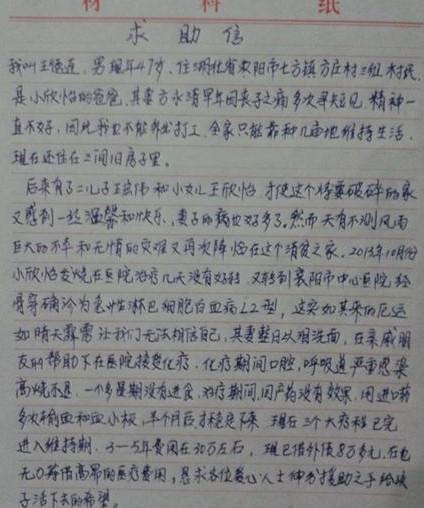 材 料 纸
求 助 信
我叫王德连，男现年47岁，住湖北省枣阳市七方镇方庄村三组村民，
是小欣怡的爸爸，其妻方永清早年因丧子之痛多次寻短见，精神一
直不好，因此我也不能外出打工，全家只能靠种几亩地维持生活，
现在还住在三间旧房子里。
后来有了二儿子王宏伟和小女儿王欣怡，才使这个将要破碎的家
又感到一丝温馨和快乐，妻子的病也好多了，然而天有不测风雨
巨大的不幸和无情的灾难又再次降临在这个清贫之家，2013年10月份
小欣怡发烧在医院治疗几天没有好转，又转到襄阳市中心医院，经
骨穿确诊为急性淋巴细胞白血病L2型，这突如其来的厄运
如晴天霹雳让我们无法相信自己，其妻整日以泪洗面，在亲戚朋
友的帮助下在医院接受化疗，化疗期间口腔，呼吸道严重感染
高烧不退，一个多星期没有进食，治疗期间，国产药没有效果，用进口药
多次输血和血小板，半个月后才稳定下来，现在三个大疗程已完
进入维持期，3—5年费用在30万左右，现已借外债8万多元，在也
无力筹借高昂的医疗费用，恳求各位爱心人士伸出援助之手给孩
子活下去的希望。